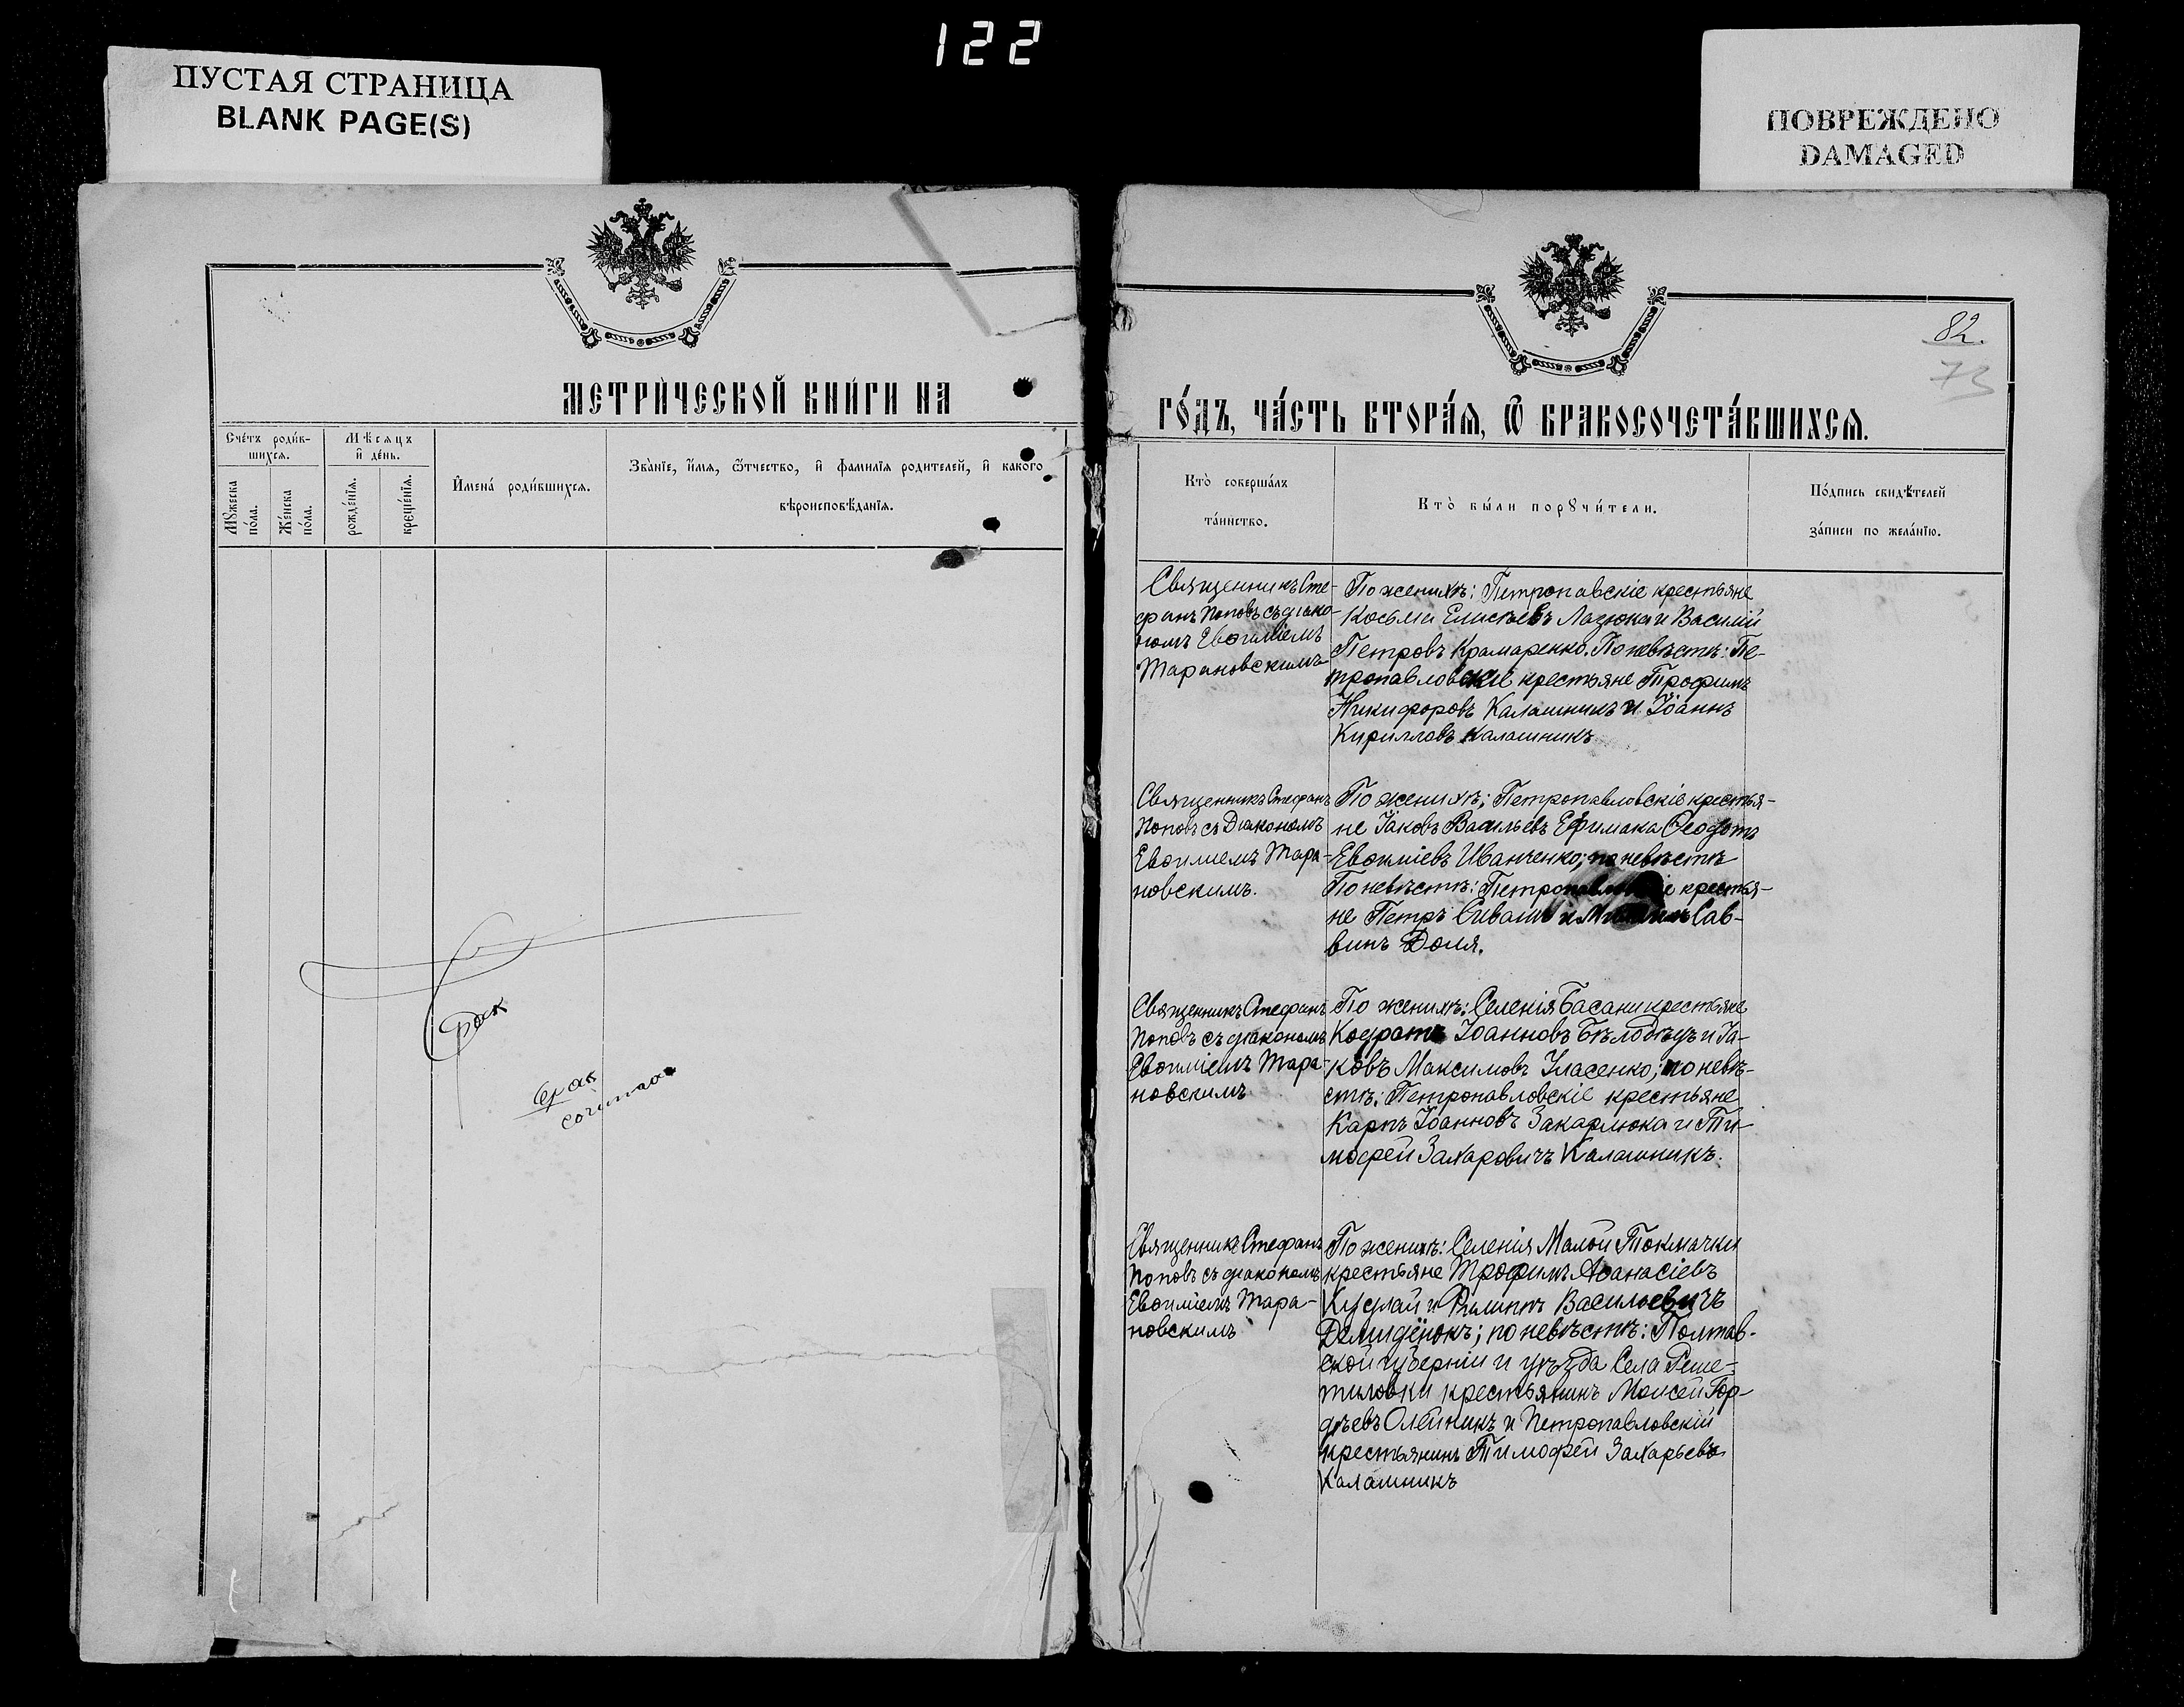 122
ПУСТАЯ СТРАНИЦА
BLANK PAGE(S)
ПОВРЕЖДЕНО
DAMAGED
МЕТРИ́ЧЕСКОЙ КНИ́ГИ НА
Сче́тъ роди́в-
шихся.
Мѣсяцъ
и҆ де́нь.
Мꙋжеска по́ла.
Же́нска по́ла.
рожде́нїѧ.
креще́нїѧ.
И҆мена́ роди́вшихся.
Зва́нїе, и҆́мѧ, ѻ҆́тчество, и҆ фамилїѧ родителей, и҆ какого
вѣроисповѣданїѧ.
брак
сочинт
82.
73
ГО́ДЪ, ЧА́СТЬ ВТОРА́Ѧ, Ѽ БРАКОСОЧЕТА́ВШИХСѦ.
Кто̀ соверша́лъ
та́инство.
Кто̀ бы́ли порꙋчи́тели.
По́дпись свидѣ́телей
за́писи по жела́нїю.
Священникъ Сте-
фанъ Поповъ съ діако-
номъ Евѳиміемъ
Тарановскимъ
По женихѣ: Петропавскіе крестьяне
Косьма Елисѣевъ Лазюка и Василій
Петровъ Крамаренко. По невѣстѣ: Пе-
тропавловскіе крестьяне Трофимъ
Никифоровъ Калашникъ и Іоаннъ
Кирилловъ Калашникъ
Священникъ Стефанъ
Поповъ съ Діакономъ
Евѳиміемъ Тара-
новскимъ.
По женихѣ; Петропавловскіе крестья-
не Іаковъ Васильевъ Ефимака Ѳеодотъ
Евѳиміевъ Иванченко; по невѣстѣ
По невѣстѣ: Петропавловскіе крестья-
не Петръ Сивашъ и Сав-
винъ Доля.
Священникъ Стефанъ
Поповъ съ діакономъ
Евѳиміемъ Тара-
новскимъ
По женихѣ: Селенія Басани крестьяне
Кодратъ Іоанновъ Бѣлобѣдъ и Іа-
ковъ Максимовъ Уласенко; по невѣ-
стѣ: Петропавловскіе крестьяне
Карпъ Іоанновъ Закарлюка и Ти-
мофей Захаровичъ Калашникъ.
Священникъ Стефанъ
Поповъ съ діакономъ
Евѳиміемъ Тара-
новскимъ
По женихѣ: Селенія Малой Токмачки
крестьяне Трофимъ Аѳанасіевъ
Куцлай и Филиппъ Васильевичъ
Демидёнокъ; по невѣстѣ: Полтав-
ской губерніи и уѣзда Села Реше-
тиловки крестьянинъ Моисей Гор-
дѣевъ Олейникъ и Петропавловскій
крестьянинъ Тимофей Захарьевъ
Калашникъ